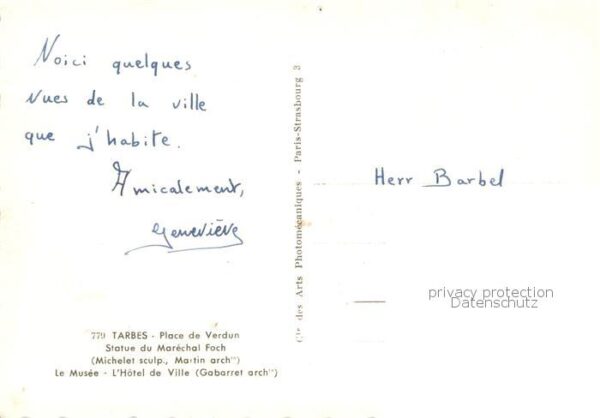 Voici quelques
vues de la ville
que j'habite.
Amicalement,
Geneviève
779 TARBES - Place de Verdun
Statue du Maréchal Foch
(Michelet sculp., Martin archᵗᵉ)
Le Musée - L'Hôtel de Ville (Gabarret archᵗᵉ)
Cⁱᵉ des Arts Photomécaniques - Paris-Strasbourg 3
Herr Barbel
privacy protection
Datenschutz